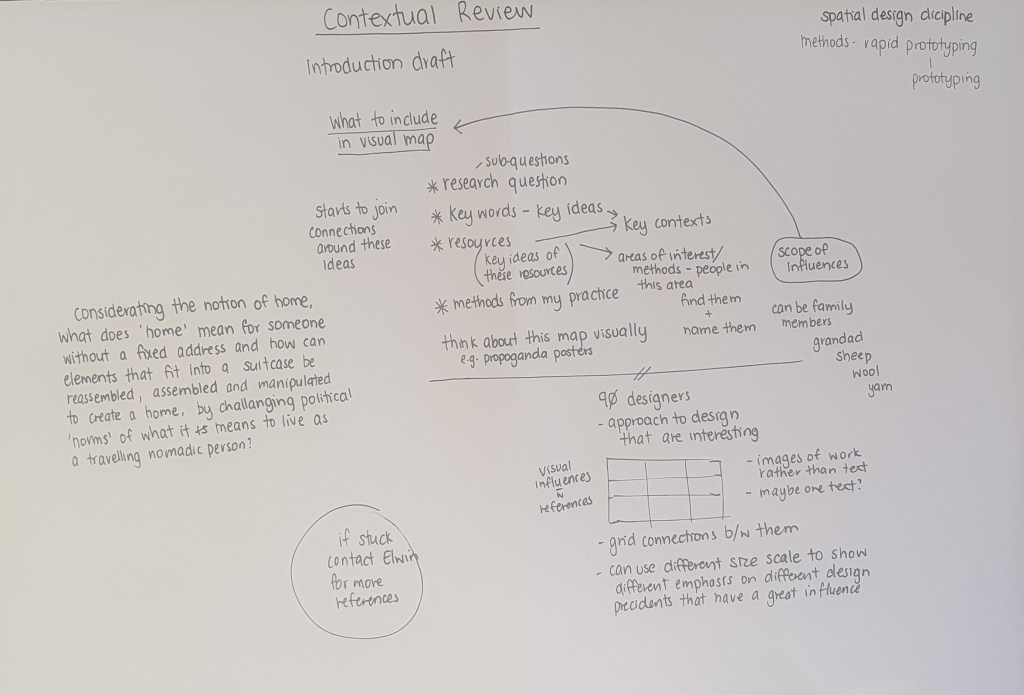 Contextual Review
Introduction draft
spatial design dicipline
methods - rapid prototyping
prototyping
What to include
in visual map
sub-questions
* research question
* key words - key ideas
key contexts
* resources
(key ideas of
these resources)
areas of interest/
methods - people in
this area
find them
+
name them
* methods from my practice
think about this map visually
e.g. propoganda posters
starts to join
connections
around these
ideas
scope of
influences
can be family
members
grandad
sheep
wool
yarn
considerating the notion of home,
what does 'home' mean for someone
without a fixed address and how can
elements that fit into a suitcase be
reassembled, assembled and manipulated
to create a home, by challanging political
'norms' of what it is means to live as
a travelling nomadic person?
designers
- approach to design
that are interesting
visual
influences
references
- images of work
rather than text
- maybe one text?
- grid connections b/w them
- can use different size scale to show
different emphasis on different design
precidents that have a great influence
if stuck
contact Elwin
for more
references